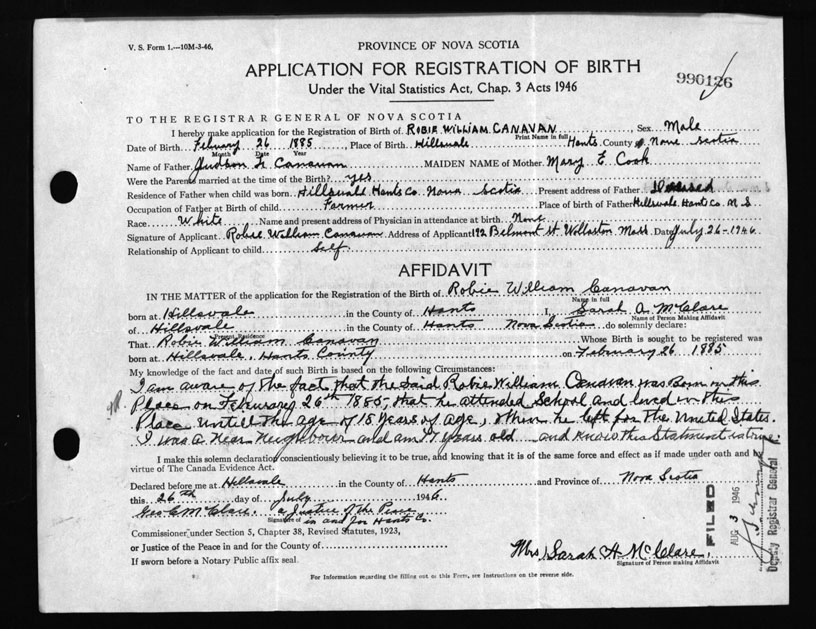 V. S. Form 1.—10M-3-46.
PROVINCE OF NOVA SCOTIA
APPLICATION FOR REGISTRATION OF BIRTH
Under the Vital Statistics Act, Chap. 3 Acts 1946
990126
TO THE REGISTRAR GENERAL OF NOVA SCOTIA
I hereby make application for the Registration of Birth of ROBIE WILLIAM CANAVAN Sex Male
Print Name in full
Date of Birth Februry 26 1885 Place of Birth Hillsvale Hants County Nova Scotia
Month Date Year
Name of Father Judson Canavan MAIDEN NAME of Mother Mary E Cook
Were the Parents married at the time of the Birth? yes
Residence of Father when child was born Hillsvale Hants Co Nova Scotia Present address of Father Deceased
Occupation of Father at Birth of child Farmer Place of birth of Father Hillsvale Hants Co. N S
Race White Name and present address of Physician in attendance at birth None
Signature of Applicant Robie William Canavan Address of Applicant 192 Belmont St Wollaston Mass Date July 26-1946
Relationship of Applicant to child Self
AFFIDAVIT
IN THE MATTER of the application for the Registration of the Birth of Robie William Canavan
Name in full
born at Hillsvale in the County of Hants I, Sarah A McClare
Name of Person Making Affidavit
of Hillsvale in the County of Hants Nova Scotia do solemnly declare:
Present Residence
That Robie William Canavan Whose Birth is sought to be registered was
born at Hillsvale, Hants County on February 26 1885
My knowledge of the fact and date of such Birth is based on the following Circumstances:
I am aware of the fact that the said Robie William Canavan was born in this
Place on February 26th 1885, that he attended School and lived in this
Place until the age of 18 years of age, when he left for the United States.
I was a near Neighbour and am years old and know this Statment is true.
I make this solemn declaration conscientiously believing it to be true, and knowing that it is of the same force and effect as if made under oath and by
virtue of The Canada Evidence Act.
Declared before me at Hillsvale in the County of Hants and Province of Nova Scotia
this 26th day of July 1946
Geo C McClare. a Justice of the Peace
Signature of in and for Hants Co.
Commissioner under Section 5, Chapter 38, Revised Statutes, 1923,
or Justice of the Peace in and for the County of
If sworn before a Notary Public affix seal
Mrs Sarah A McClare.
Signature of Person making Affidavit
FILED
AUG 3 1946
Deputy Registrar General
For Information regarding the filling out of this Form, see Instructions on the reverse side.